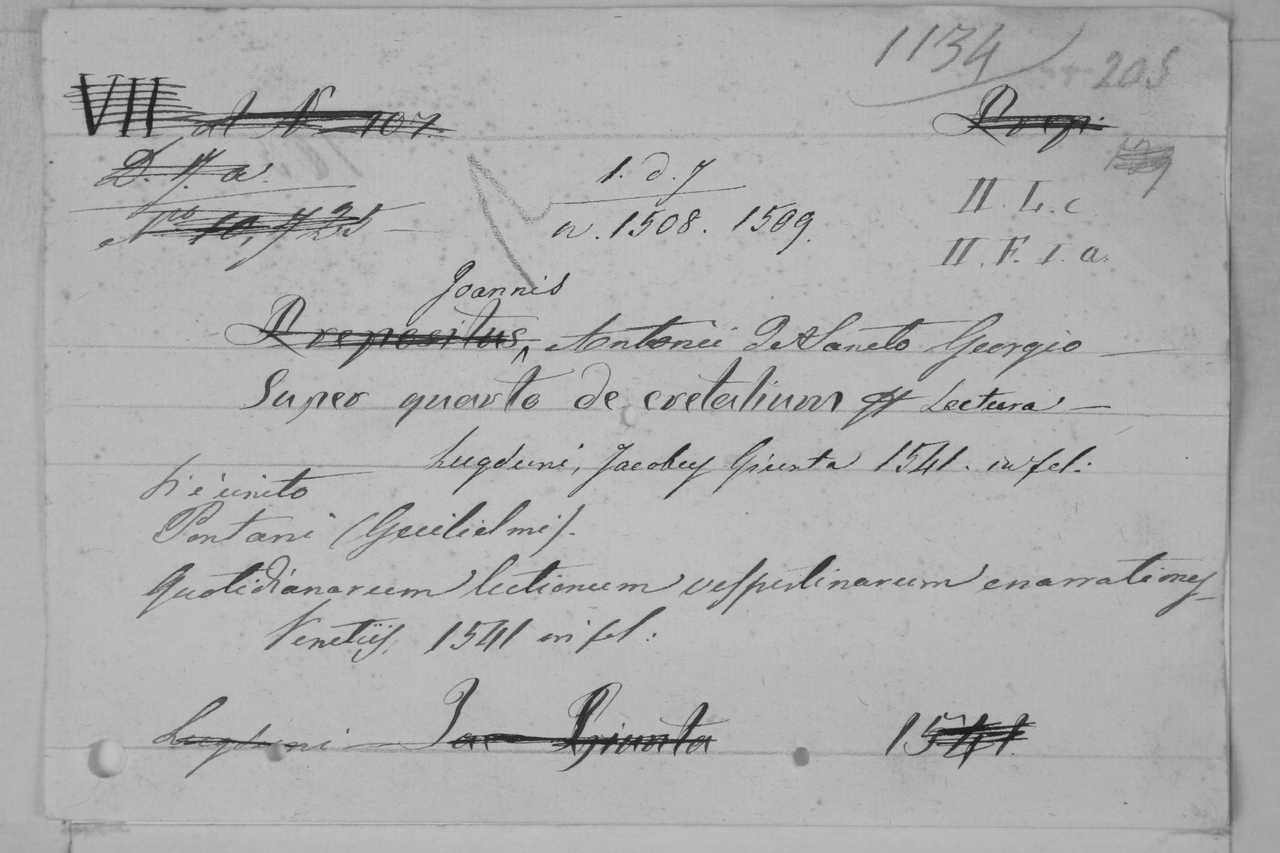 1134 205
VII al N. 107. Prepi.
D. 7. a. 1. d. 7
II. L. c.
No 10,728 a. 1508. 1509.
II. F. 1. a.
Joannis
Prepositus, Antonii De Sancto Georgio
Super quarto de cretalium Lectura
Lugduni, Jacobus Giunta 1541. in fol:
Vi è unito
Pontani (Guilielmi).
Quotidianarum lectionum vespertinarum enarrationes
Venetijs, 1541 in fol:
Lugduni Jac Giunta 1541